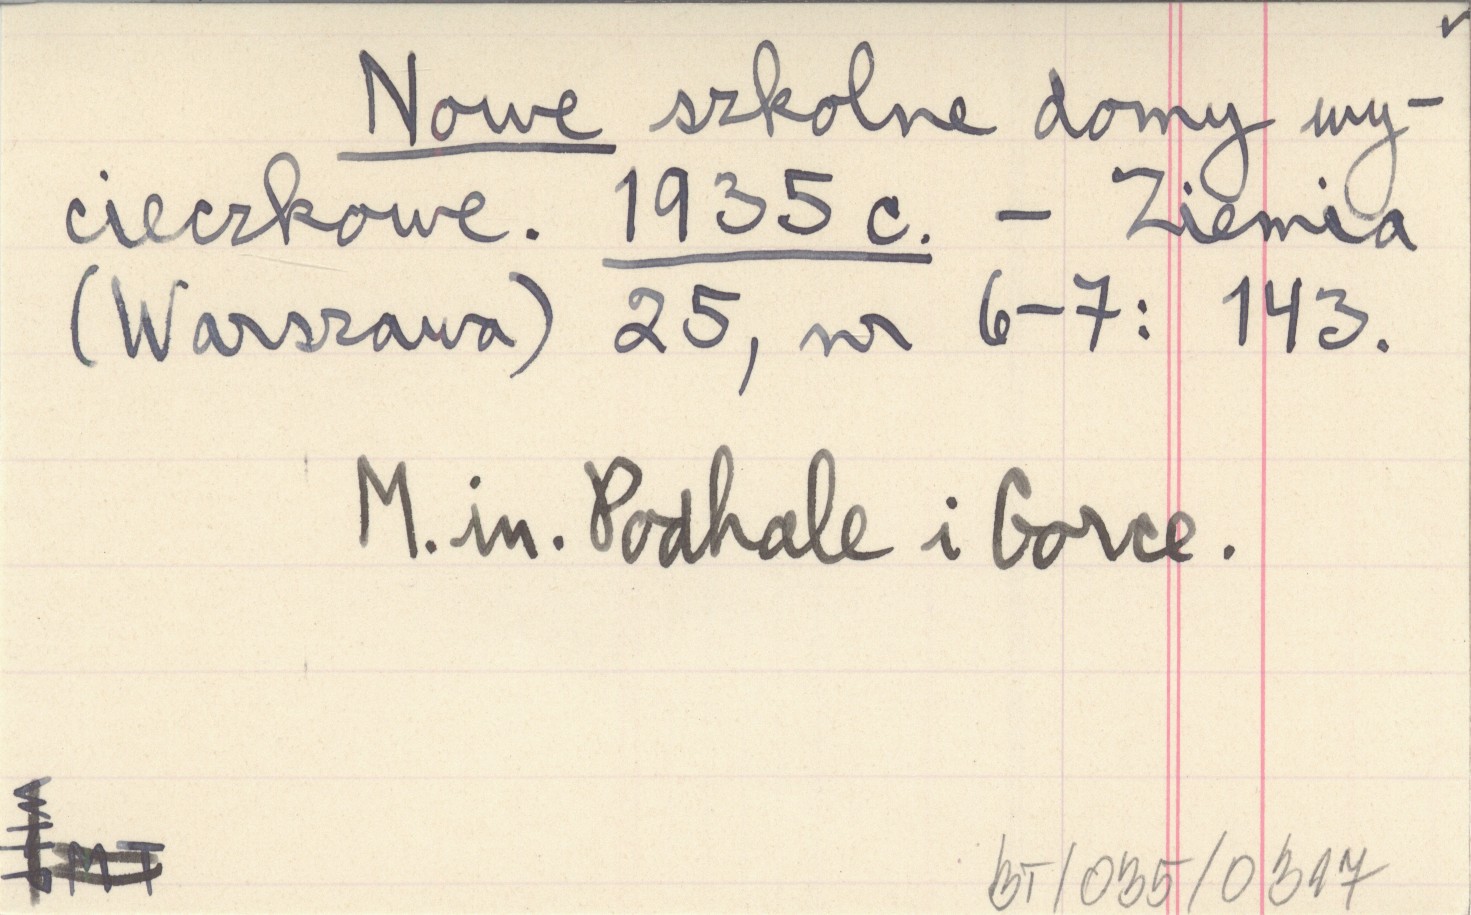 Nowe szkolne domy wy-
cieczkowe. 1935 c. – Ziemia
(Warszawa) 25, nr 6–7: 143.
M. in. Podhale i Gorce.
MT
BT/035/0317